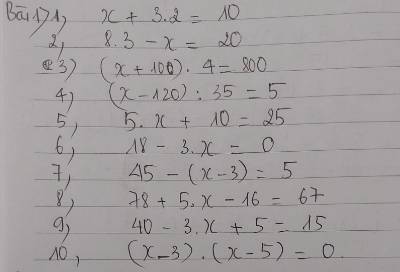 Bài 1) 1, x + 3.2 = 10
2, 8.3 - x = 20
3) (x + 100) . 4 = 800
4) (x - 120) : 35 = 5
5, 5.x + 10 = 25
6, 18 - 3.x = 0
7, 45 - (x - 3) = 5
8, 78 + 5.x - 16 = 67
9, 40 - 3.x + 5 = 15
10, (x - 3) . (x - 5) = 0.